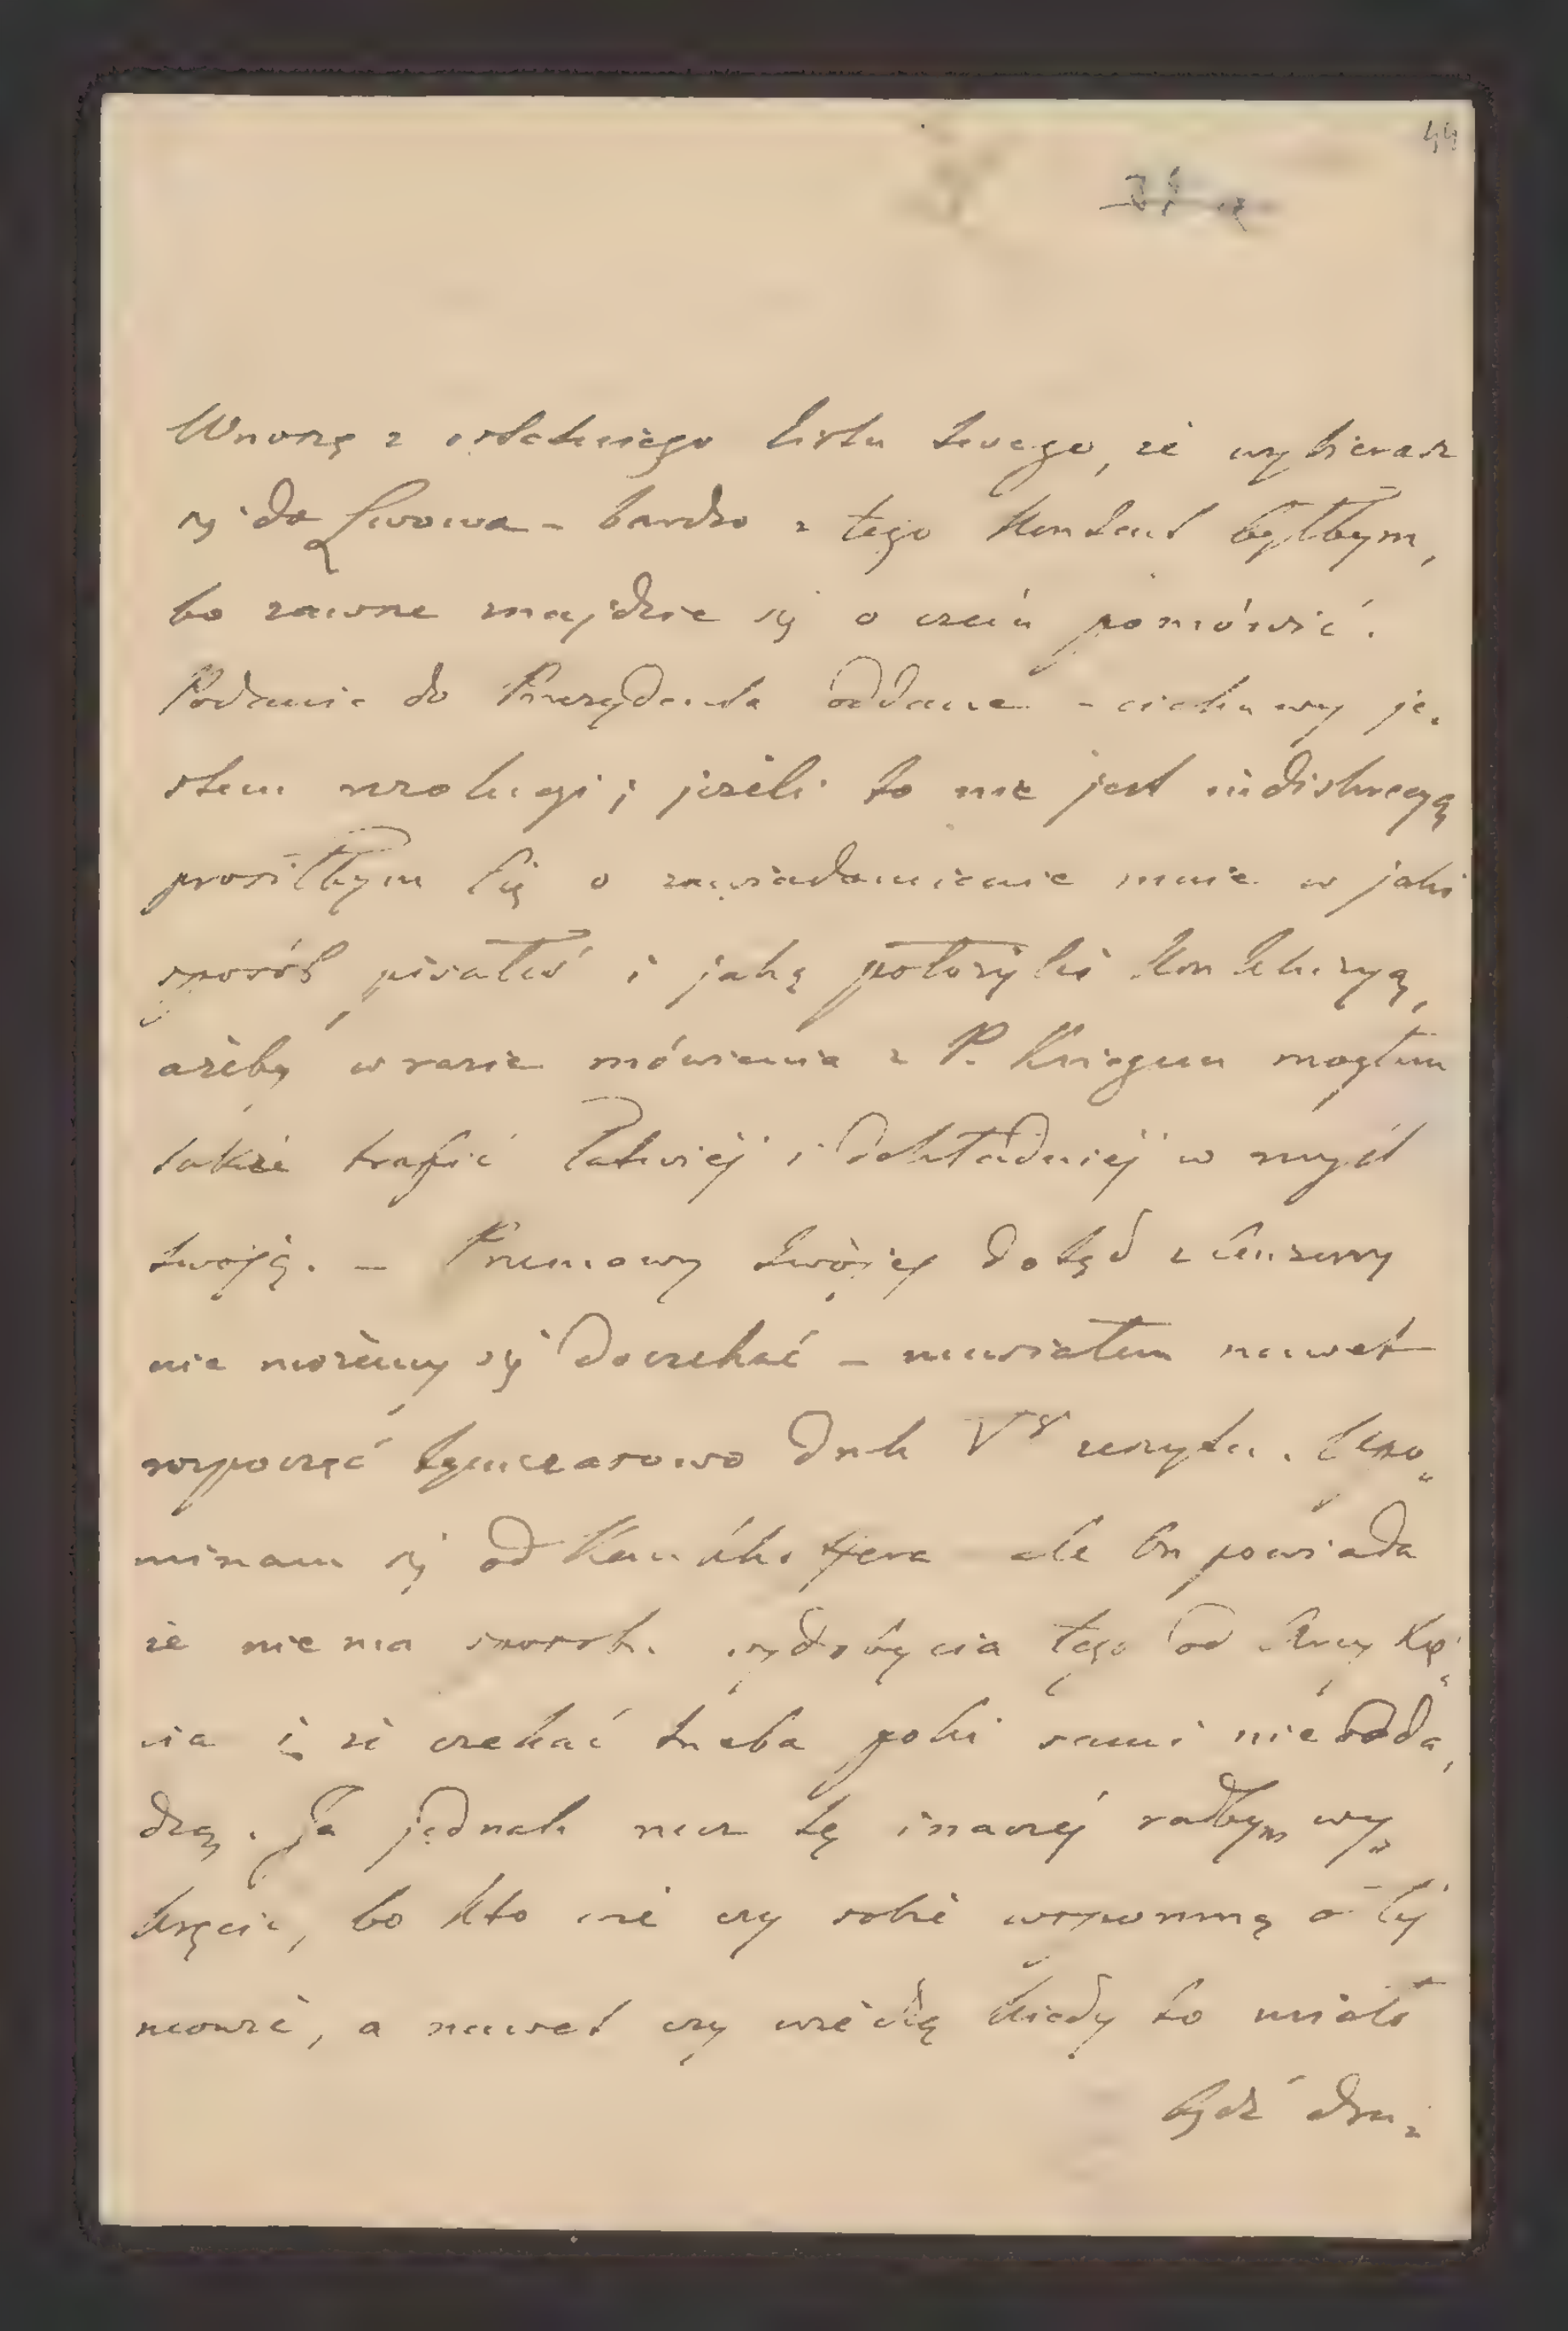 44
Wnoszę z ostatniego listu twego, że wybierasz
się do Lwowa – bardzo z tego kontent byłbym,
bo zawsze znajdzie się o czém pomówić.
Podanie do Prezydenta oddane – ciekawy je„
stem rezolucyi; jeżeli to nie jest indiskrecyą
prosiłbym Cię o zawiadomienie mnie w jaki
sposób pisałeś i jaką położyłeś konkluzyą,
ażeby w razie mówienia z P. Kriegiem mogłem
także trafić łatwiéj i dokładniéj w myśl
twoję. – Przemowy twojéj dotąd z Cenzury
nie możemy się doczekać – musiałem nawet
rozpocząć tymczasowo druk Vº zeszytu. Upo„
minam się od ale On powiada
że niema sposobu wydobycia tego od Arcy Xię„
cia i że czekać trzeba póki sami nie odda„
dzą. Ja jednak rzecz tę inaczéj radbym wy„
kręcić, bo kto wié czy sobie wspomną o téj
mowie, a nawet czy wiedzą kiedy to miało
bydź dru„